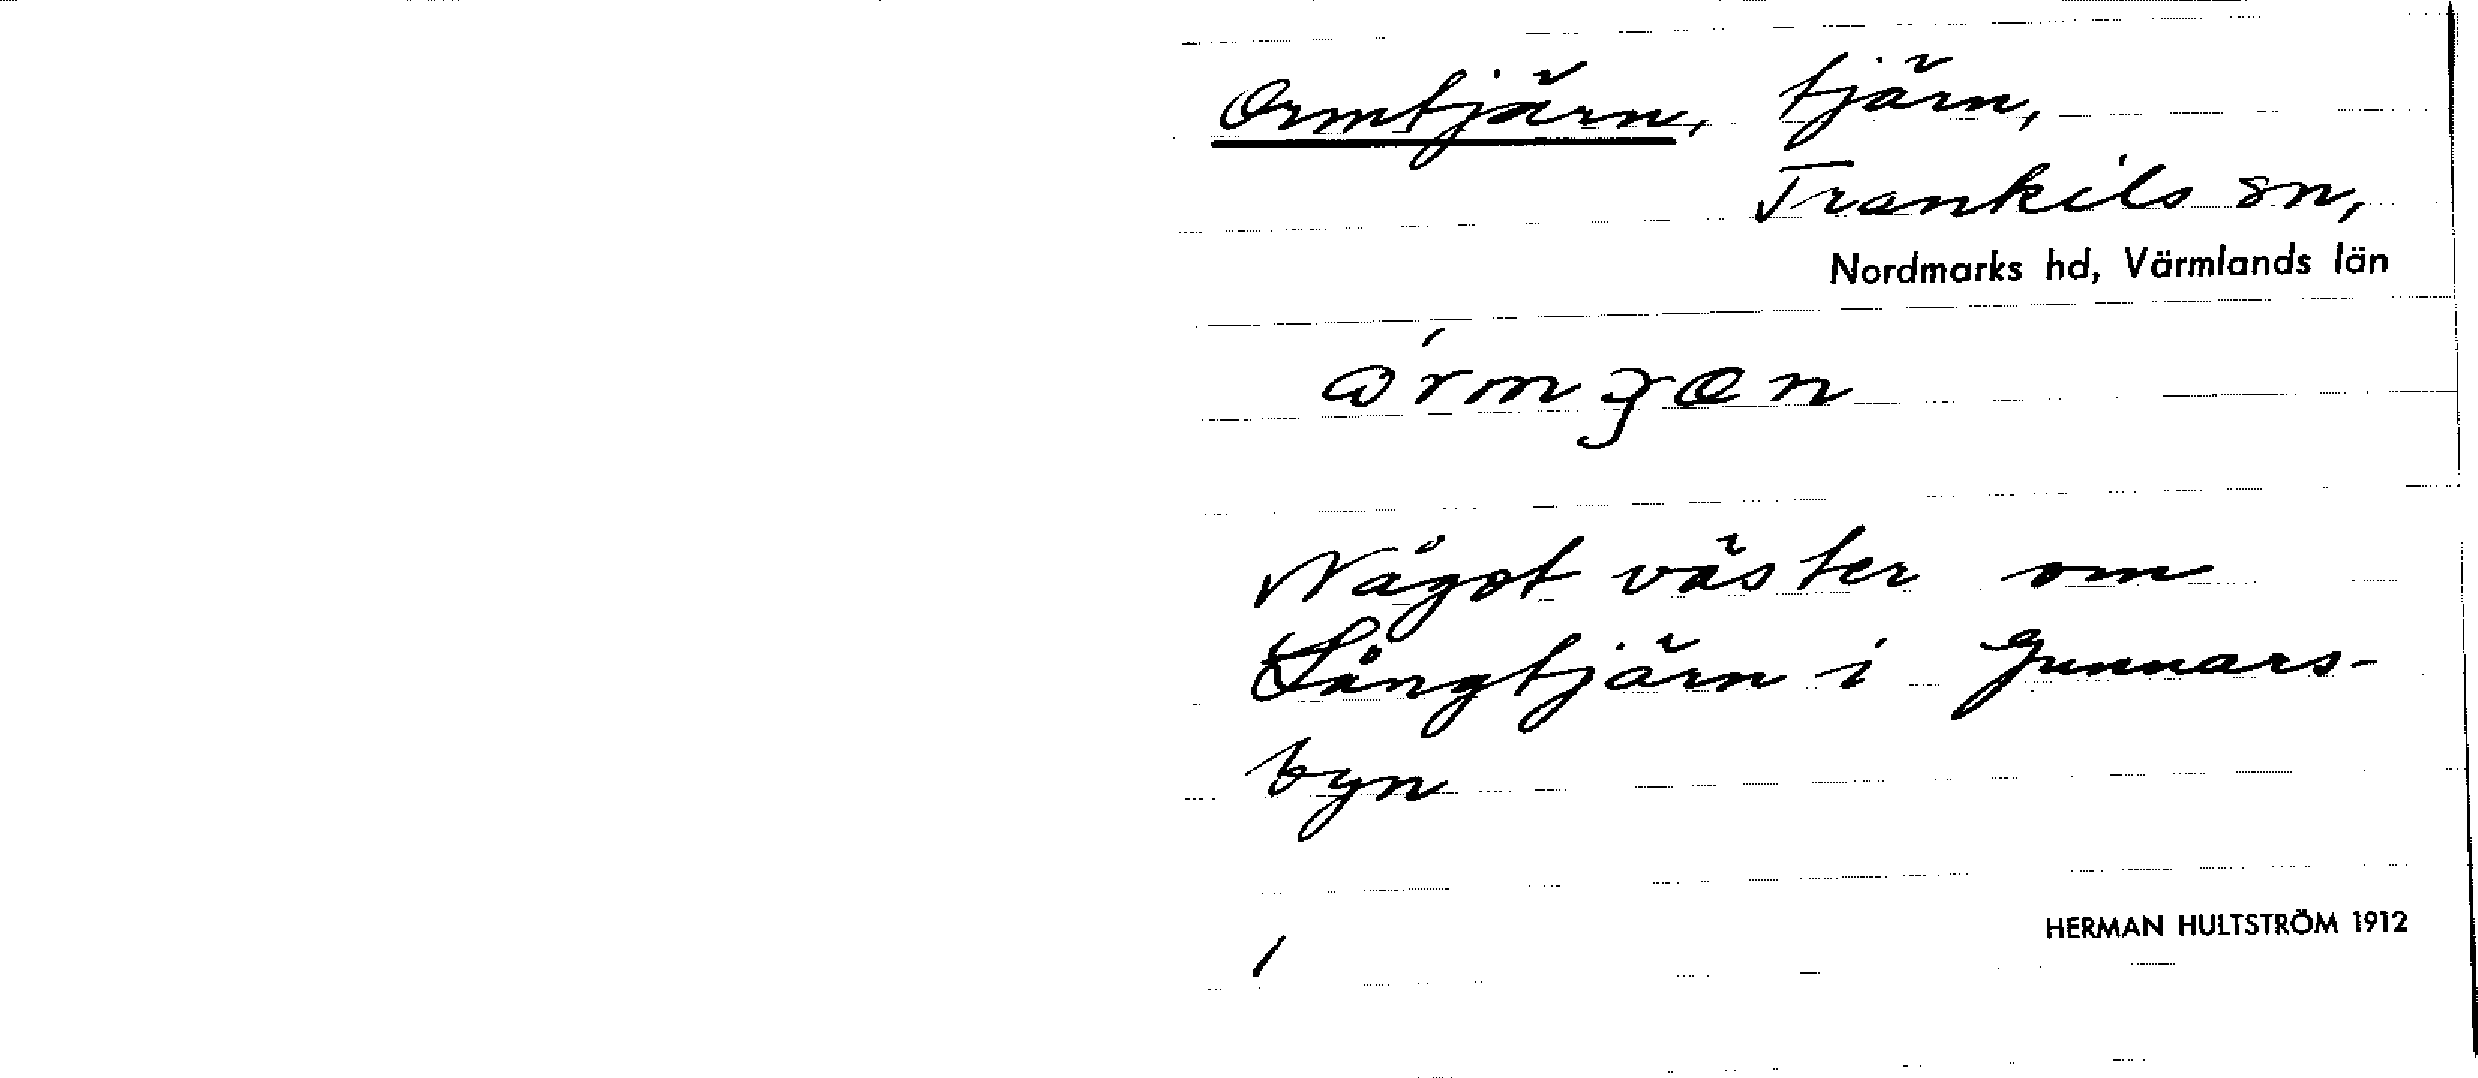 Ormtjärn, tjärn,
Trankils sn,
Nordmarks hd, Värmlands län
Något väster om
Långtjärn i Gunnars-
byn
HERMAN HULTSTRÖM 1912
1